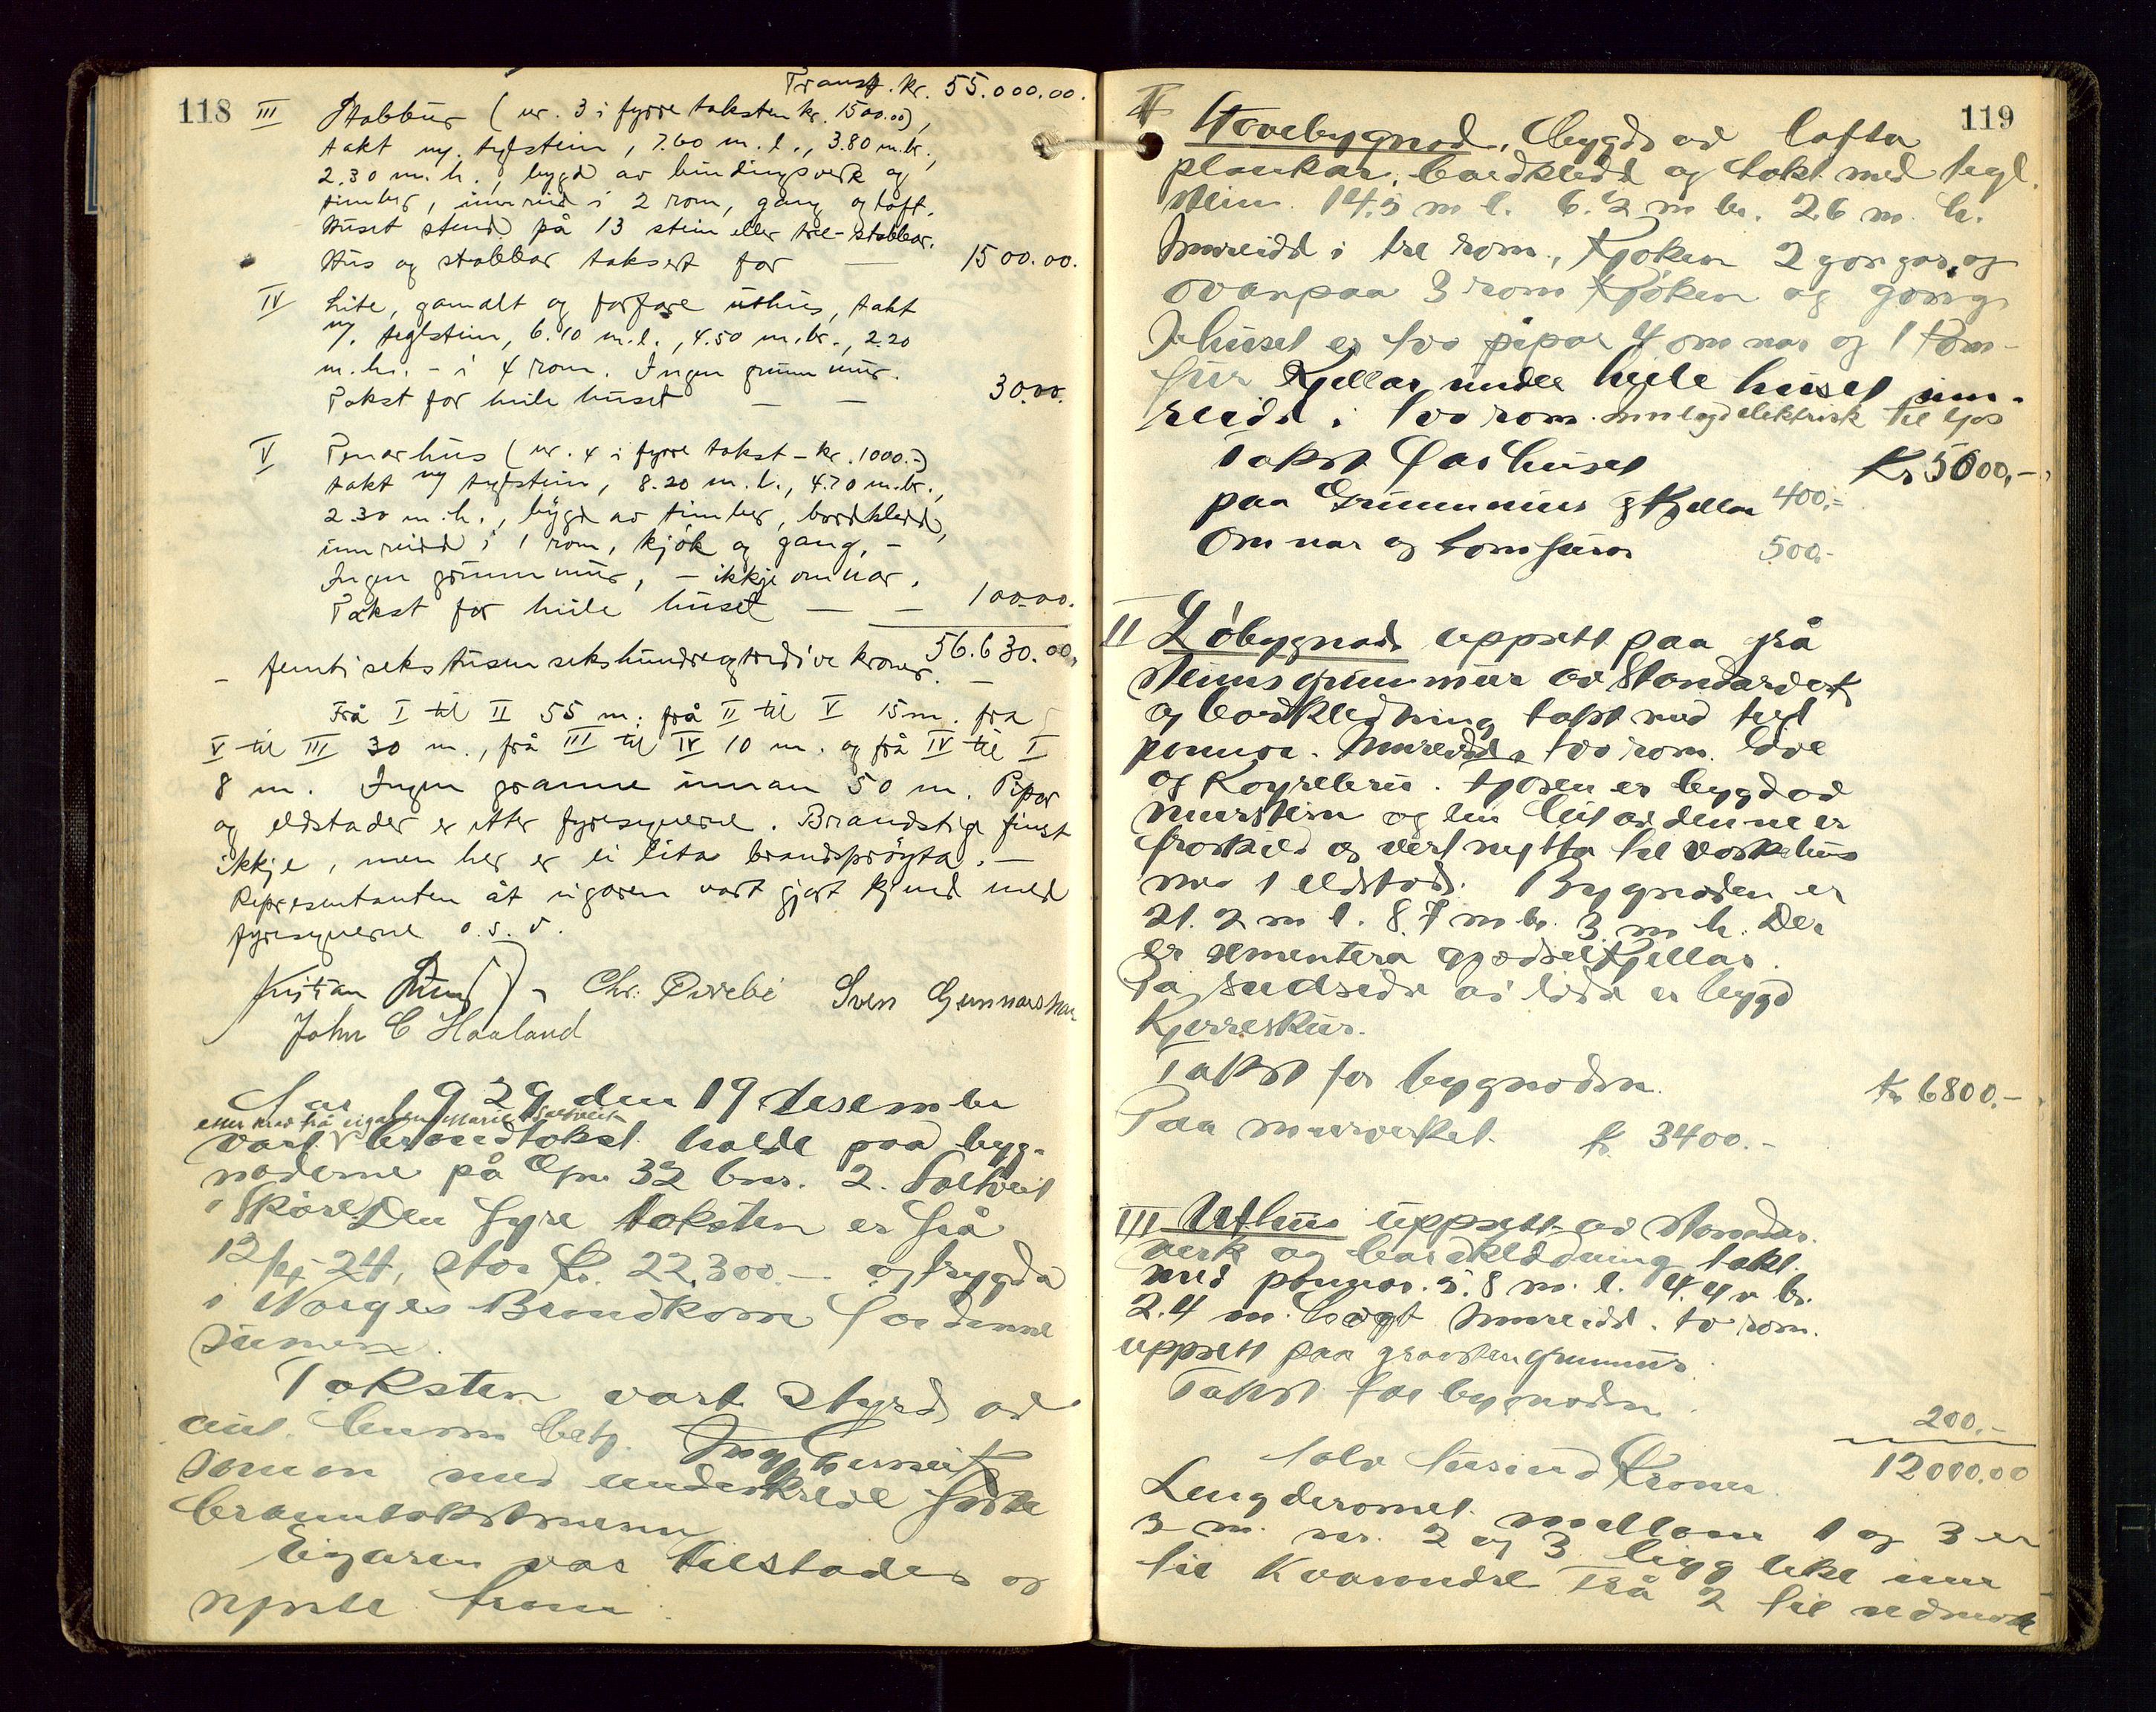 118
Transp. kr. 55.000.00.
III Stabbur (nr. 3 i fyrre taksten kr. 1500.00),
takt m/ teglstein, 7.60 m. l., 3.80 m. br.,
2.30 m. h., bygd av bindingsverk og
timber, innreid i 2 rom, gang og loft.
Huset stend på 13 stein eller tre-stabbar.
Hus og stabbar taksert for — 1500.00.
IV Lite, gamalt og forfare uthus, takt
m/. teglstein, 6.10 m. l., 4.50 m. br., 2.20
m. h. - i 4 rom. Ingen grunnmur.
Takst for heile huset — — 30.00.
V Tenarhus (nr. 4 i fyrre takst - kr. 1000.-)
takt m/ teglstein, 8.20 m. l., 4.70 m. br.,
2.30 m. h., bygd av timber, bordkledd,
innreidd i 1 rom, kjøk og gang, -
Ingen grunnmur, - ikkje omnar.
Takst for heile huset — — 100.00.
56.630.00.
- femti seks tusen sekshundreogtredive kroner. -
Frå I til II 55 m; frå II til V 15 m. fra
V til III 30 m., frå III til IV 10 m. og frå IV til I
8 m. Ingen granne innan 50 m. Pipor
og eldstader er etter fyresegnerne. Brandstige finst
ikkje, men her er ei lita brandsprøyta. —
Representanten åt eigaren vart gjort kjend med
fyresegnerne o. s. v.
Kristian Chr. Sven Gunnarshau
John C Haaland
Aar 1929 den 19 desember
etter krav frå eigaren Marie Saltveit
vart brandtakst halde paa byg-
naderne på Gnr 32 bnr. 2. Saltveit
i Skåre. Den fyre taksten er frå
12/4-24, stor Kr. 22.300.- og trygda
i Norges Brandkasse for denne
summen.
Taksten vart styrd av
aut.
som med underskreve
branntakstmenn
Eigaren var tilstades og
synte fram.
119
I Stovebygnad, bygd av lafta
plankar, bordkledd og takt med tegl.
stein. 14.5 m l. 6.2 m br. 2.6 m. h.
Innreidd i tre rom, kjøken 2 gongar, og
ovanpaa 3 rom kjøken og gong,
I huset er tvo pipor 4 omnar og 1 kom-
fur Kjellar under heile huset inn-
reidd i tvo rom. innlagd elektrisk til ljos
Takst for huset Kr 5000,-
paa Grunnmur og Kjellar 400,-
Omnar og komfuren 500,-
II Løbygnad uppsett paa grå
steinsgrunnmur av Standarverk
og bordkledning takt med tegl
pannor. Innreidd i tvo rom. løe
og Køyrebru. Fjosen er bygd av
murstein og ein bit av denne er
fraskild og vert nytta til vaskehus
med 1 eldstad. Bygnaden er
21.2 m l. 8.7 m br. 3 m h. Der
er sementera gjødselkjellar.
På sudsida av løda er bygd
Kjerreskur.
Takst for bygnaden. kr 6800.-
Paa murverket kr. 3400.-
III Uthus uppsett av standar-
verk og bordkledning takt
med pannor. 5.8 m. l. 4.4 m br.
2.4 m. høgt Innreidd. to rom.
uppsett paa graastensgrunnmur.
Takst for bygnaden. 200.-
tolv tusind Kroner 12000.00
Lengderomet mellom 1 og 3 er
3 m. nr. 2 og 3 ligg like inn
til Kvarandre Frå 2 til nedmeste